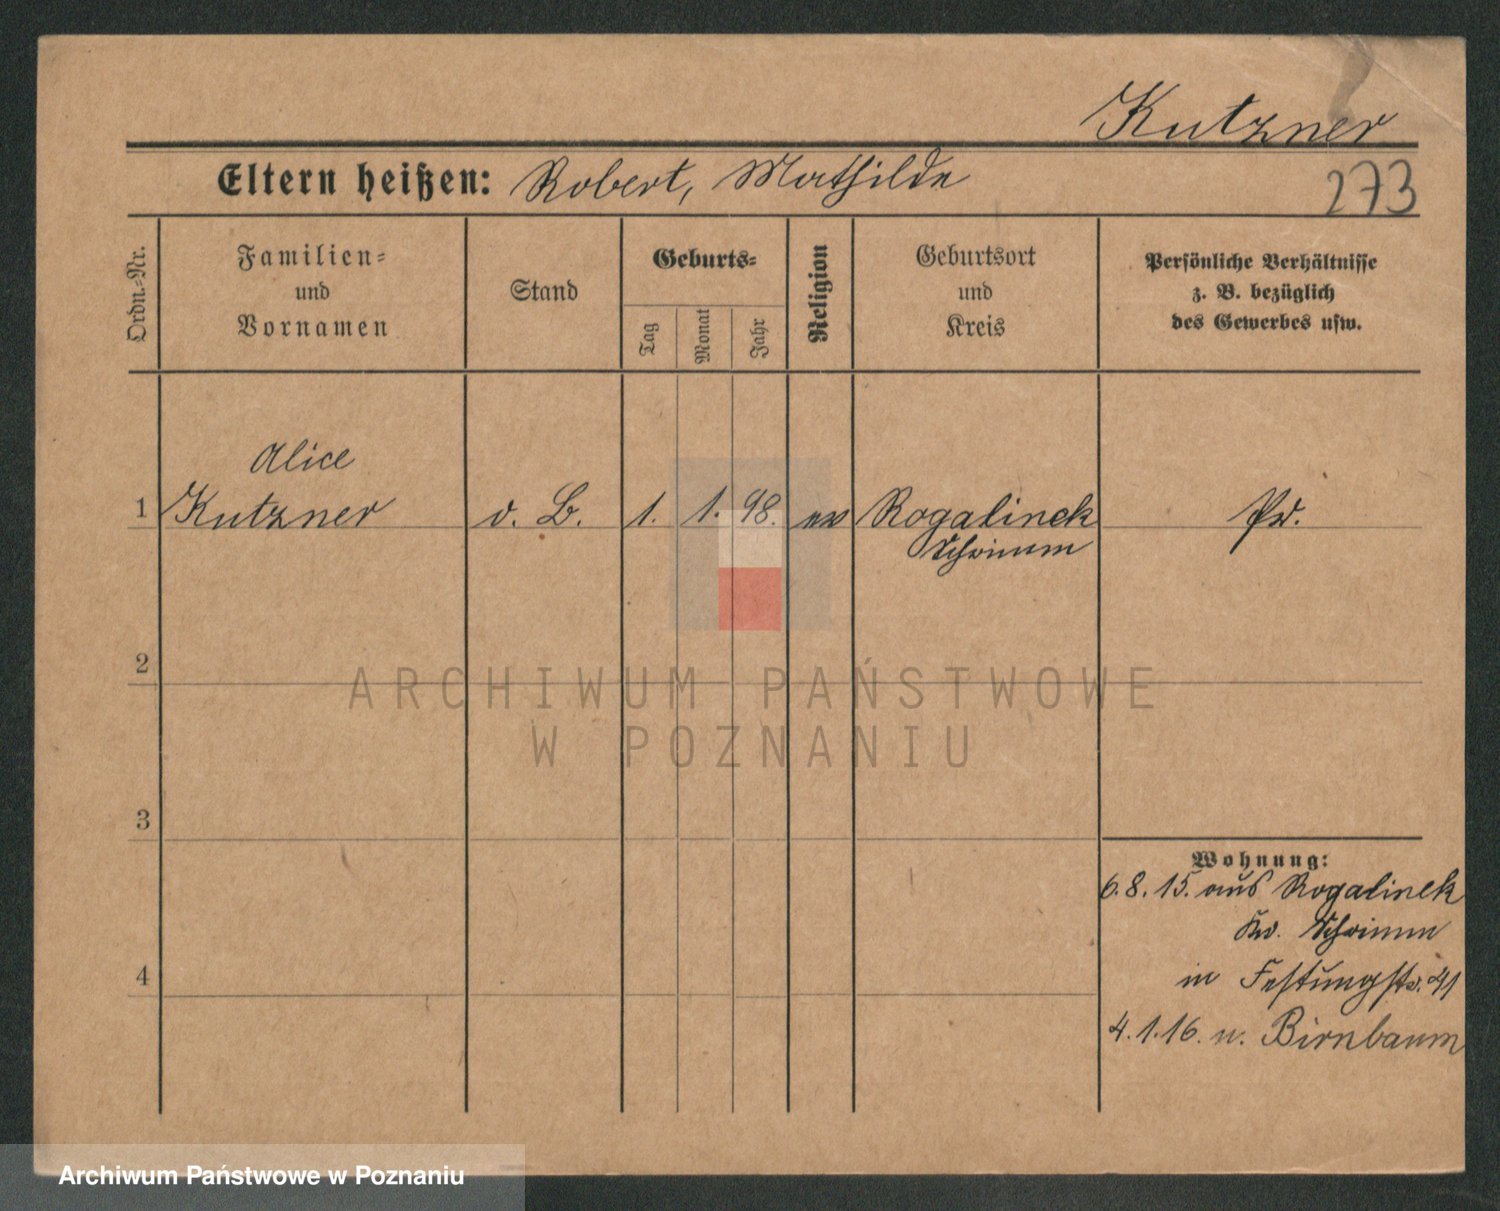 Kutzner
Eltern heißen: Robert, Mathilde
273
Ordn.-Nr.
Familien-
und
Vornamen
Stand
Geburts-
Tag
Monat
Jahr
Religion
Geburtsort
und
Kreis
Persönliche Verhältnisse
z. B. bezüglich
des Gewerbes usw.
Alice
1 Kutzner o. B. 1. 1. 98. ev Rogalinek Pr.
Schrimm
2
3
4
Wohnung:
6. 8. 15. aus Rogalinek
Kr. Schrimm
in Festungstr. 41
4. 1. 16. n. Birnbaum
ARCHIWUM PAŃSTWOWE
W POZNANIU
Archiwum Państwowe w Poznaniu